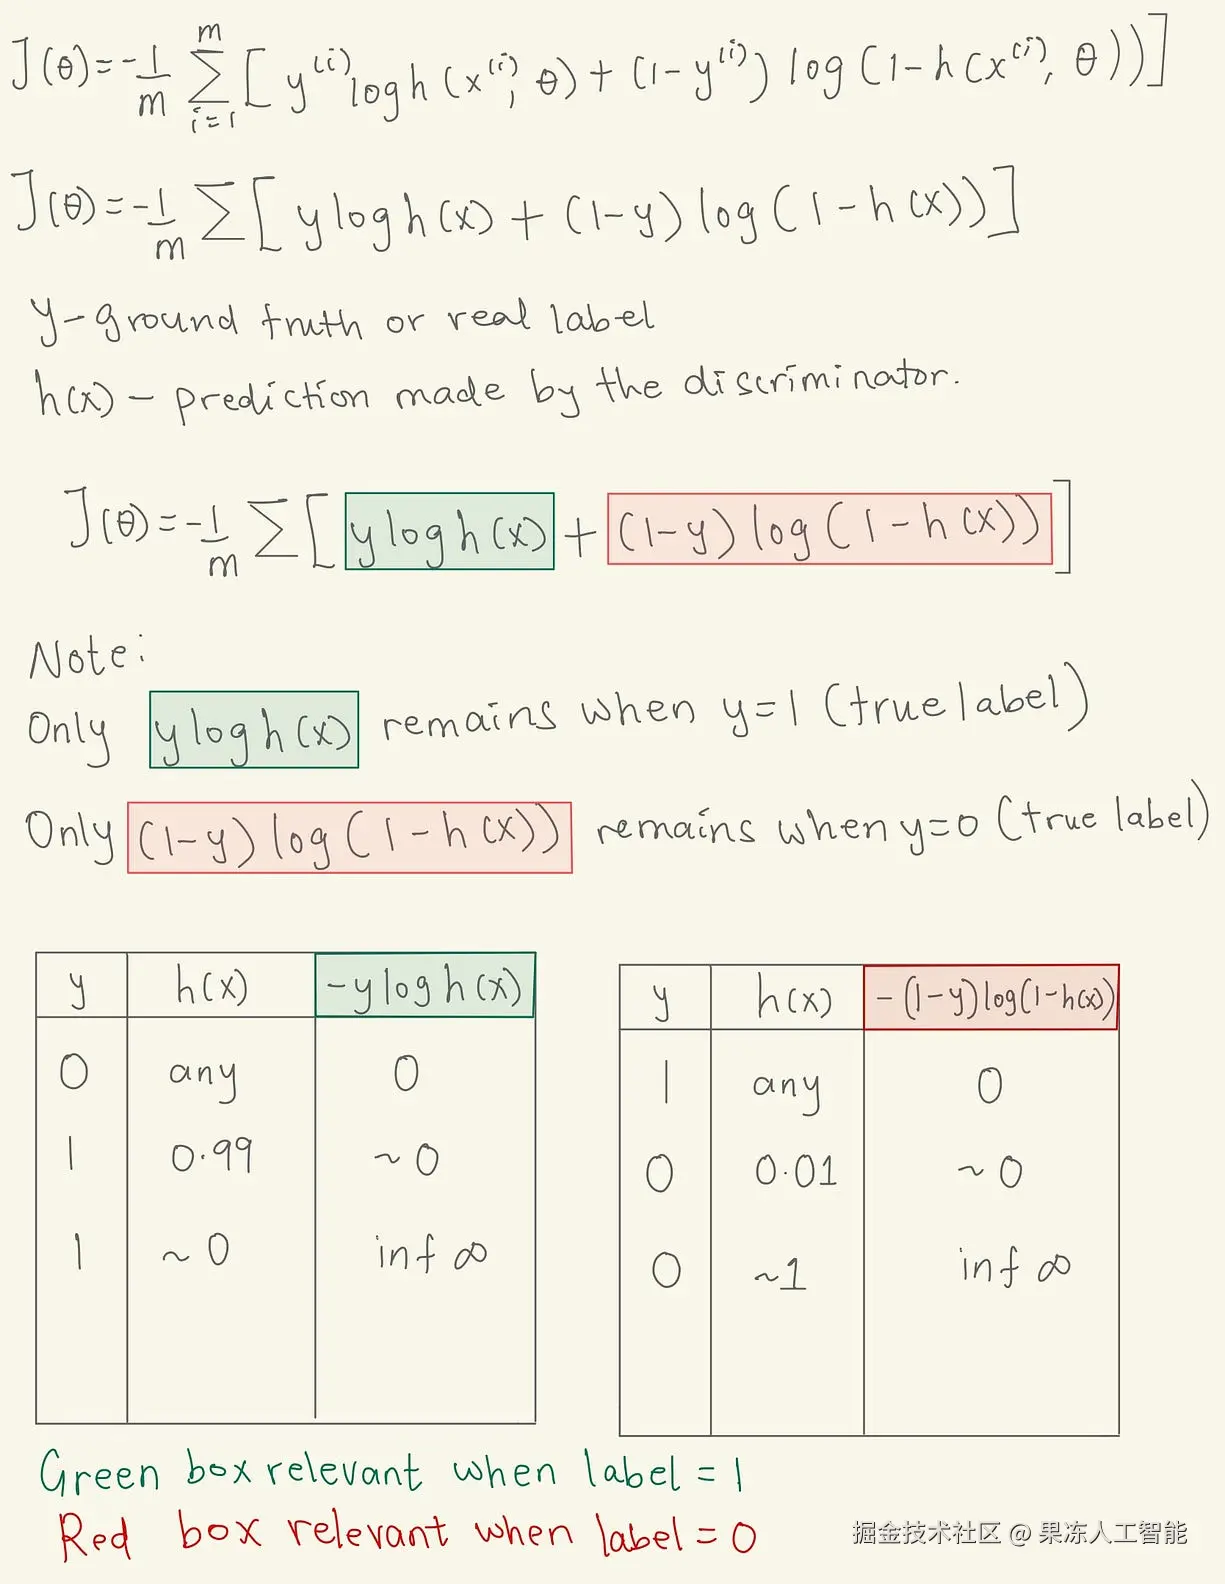 J(θ)=-1/m Σ_{i=1}^{m} [ y^{(i)} log h (x^{(i)}, θ) + (1-y^{(i)}) log (1-h(x^{(i)}, θ))]
J(θ)=-1/m Σ [ y log h(x) + (1-y) log (1-h(x))]
y-ground truth or real label
h(x) - prediction made by the discriminator.
J(θ)=-1/m Σ [ y log h(x) + (1-y) log (1-h(x)) ]
Note:
Only y log h(x) remains when y=1 (true label)
Only (1-y) log (1-h(x)) remains when y=0 (true label)
y h(x) -y log h(x)
0 any 0
1 0.99 ~0
1 ~0 inf ∞
y h(x) -(1-y) log(1-h(x))
1 any 0
0 0.01 ~0
0 ~1 inf ∞
Green box relevant when label = 1
Red box relevant when label = 0
掘金技术社区 @ 果冻人工智能